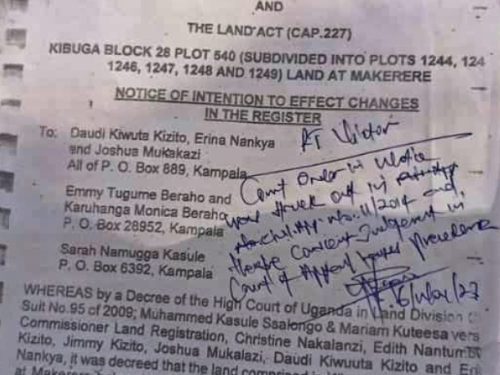 AND
THE LAND ACT (CAP.227)
KIBUGA BLOCK 28 PLOT 540 (SUBDIVIDED INTO PLOTS 1244, 124
1246, 1247, 1248 AND 1249) LAND AT MAKERERE
NOTICE OF INTENTION TO EFFECT CHANGES
IN THE REGISTER
To: Daudi Kiwuta Kizito, Erina Nankya
and Joshua Mukakazi
All of P. O. Box 889, Kampala
Emmy Tugume Beraho and
Karuhanga Monica Beraho
P. O. Box 28952, Kampala
Sarah Namugga Kasule
P. O. Box 6392, Kampala
Victor
Court Order in
was struck out in
No. 11/2014 and,
Consent Judgement in
Court of Appeal
WHEREAS by a Decree of the High Court of Uganda in Land Division (
Suit No.95 of 2009; Muhammed Kasule Ssalongo & Mariam Kuteesa vers
Commissioner Land Registration, Christine Nakalanzi, Edith Nantum
Kizito, Jimmy Kizito, Joshua Mukalazi, Daudi Kiwuuta Kizito and Eri
Nankya, it was decreed that the land comprised in
at Makerere